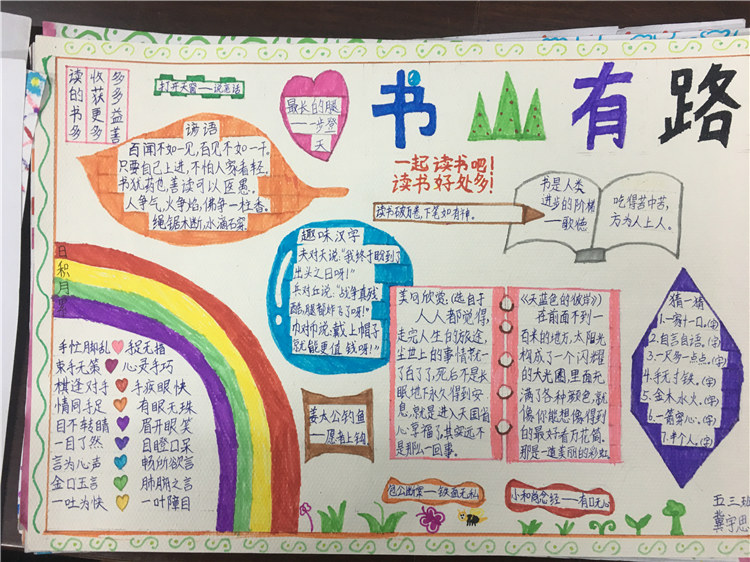 书山有路
读的书多
收获更多
多多益善
打开天窗——说亮话
最长的腿
——一步登
天
谚语
百闻不如一见,百见不如一干。
只要自己上进,不怕人家看轻。
书犹药也,善读可以医愚。
人争气,火争焰,佛争一柱香。
绳锯木断,水滴石穿。
一起读书吧!
读书好处多!
读书破万卷,下笔如有神。
书是人类
进步的阶梯
——歌德
吃得苦中苦,
方为人上人。
趣味汉字
夫对天说:“我终于盼到了
出头之日呀!”
兵对丘说:“战争真残
酷,腿都炸了了呀!”
巾对币说:戴上帽子
就能更值钱啊!”
日积月累
手忙脚乱 捉无措
束手无策 心灵手巧
棋逢对手 手疾眼快
情同手足 有眼无珠
目不转睛 眉开眼笑
一目了然 目瞪口呆
言为心声 畅所欲言
金口玉言 肺腑之言
一吐为快 一叶障目
姜太公钓鱼
——愿者上钩
美句欣赏,(选自于
人人都觉得,
走完人生台的旅途,
尘世上的事情就一
了百了了,死后不是长
眠地下永久得到安
息,就是进入天国省
心享福了,其实远不
是那么一回事。
《天蓝色的彼岸》)
在前面不到一
百米的地方,太阳光
构成了一个闪耀
的大光圈,里面充
满了各种颜色,就
像你能想像得到
的最好看万花筒。
那是一道美丽的彩虹
猜一猜
1.一家十一口。(字)
2.自言自语。(字)
3.一尺多一点点。(字)
4.手无寸铁。(字)
5.金木水火。(字)
6.一箭穿心。(字)
7.半个人。(字)
包公断案——铁面无私
小和尚念经——有口无心
五三班